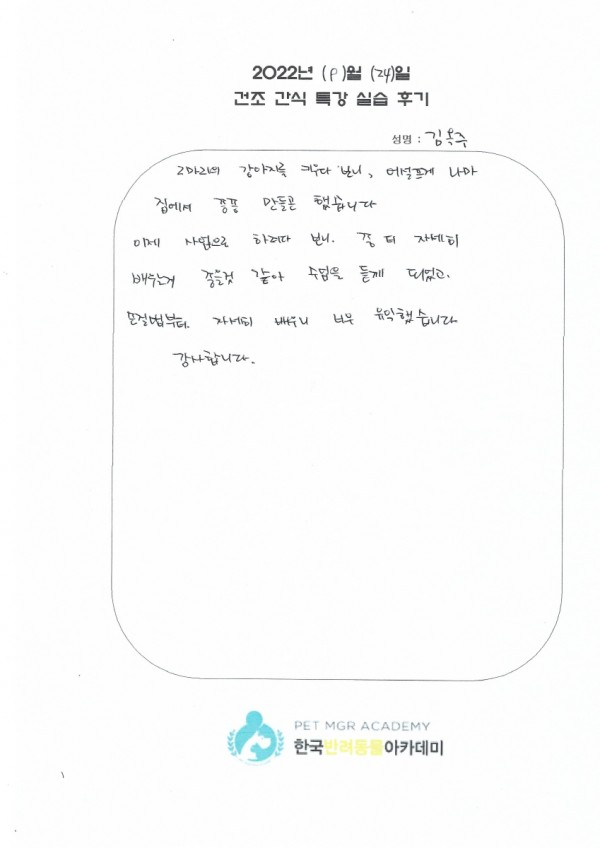 2022년 (9)월 (24)일
건조 간식 특강 실습 후기
성명 : 김옥주
2마리의 강아지를 키우다 보니, 어설프게 나마
집에서 종종 만들곤 했습니다
이제 사업으로 하려다 보니. 좀 더 자세히
배우는게 좋을것 같아 수업을 듣게 되었고.
손질법부터. 자세히 배우니 너무 유익했습니다
감사합니다.
PET MGR ACADEMY
한국반려동물아카데미